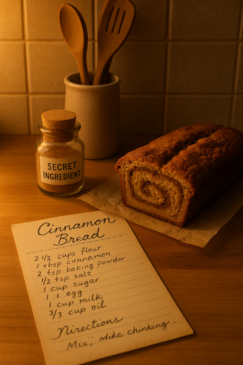 SECRET
INGREDIENT
Cinnamon
Bread
2 ½ cups flour
1 obsp cinnamon
2 tsp baking powder
½ tsp salt
1 cup sugar
1 egg
1 cup milk
⅔ cup oil
Nirections
Mix, mike chinking...